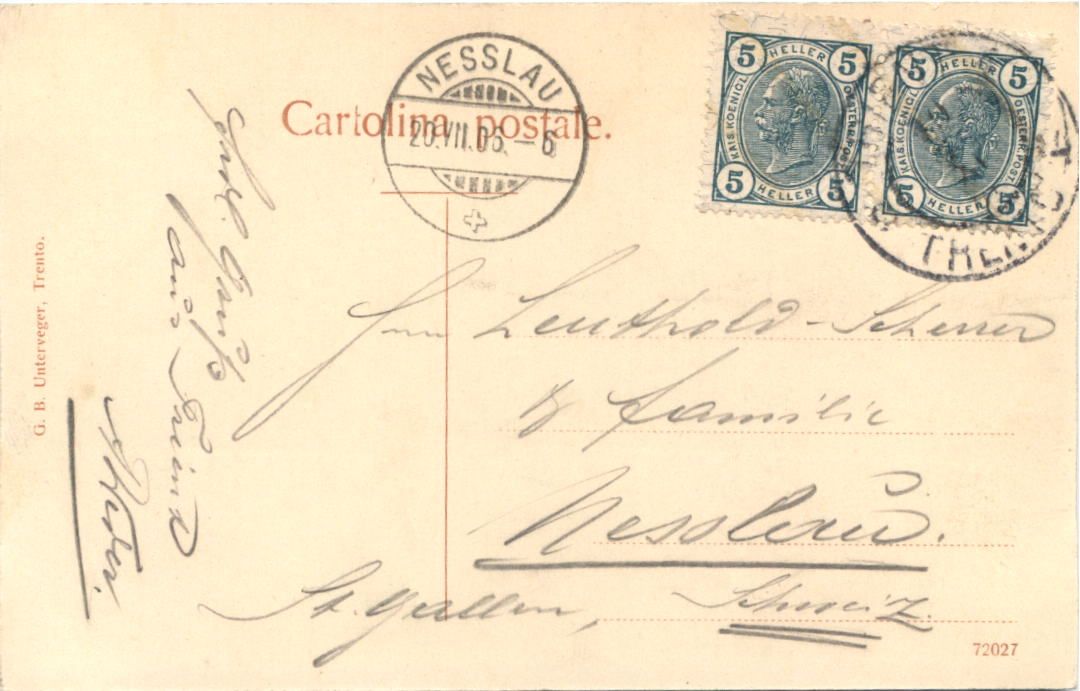 Cartolina postale.
NESSLAU
20.VII.06.-6
5 HELLER 5
KAIS. KOENIGL. OESTERR. POST
5 HELLER 5
5 HELLER 5
KAIS. KOENIGL. OESTERR. POST
5 HELLER 5
Herrn Leuthold-Scherrer
& Familie
Nesslau.
St. Gallen, Schweiz.
aus
G. B. Unterveger, Trento.
72027